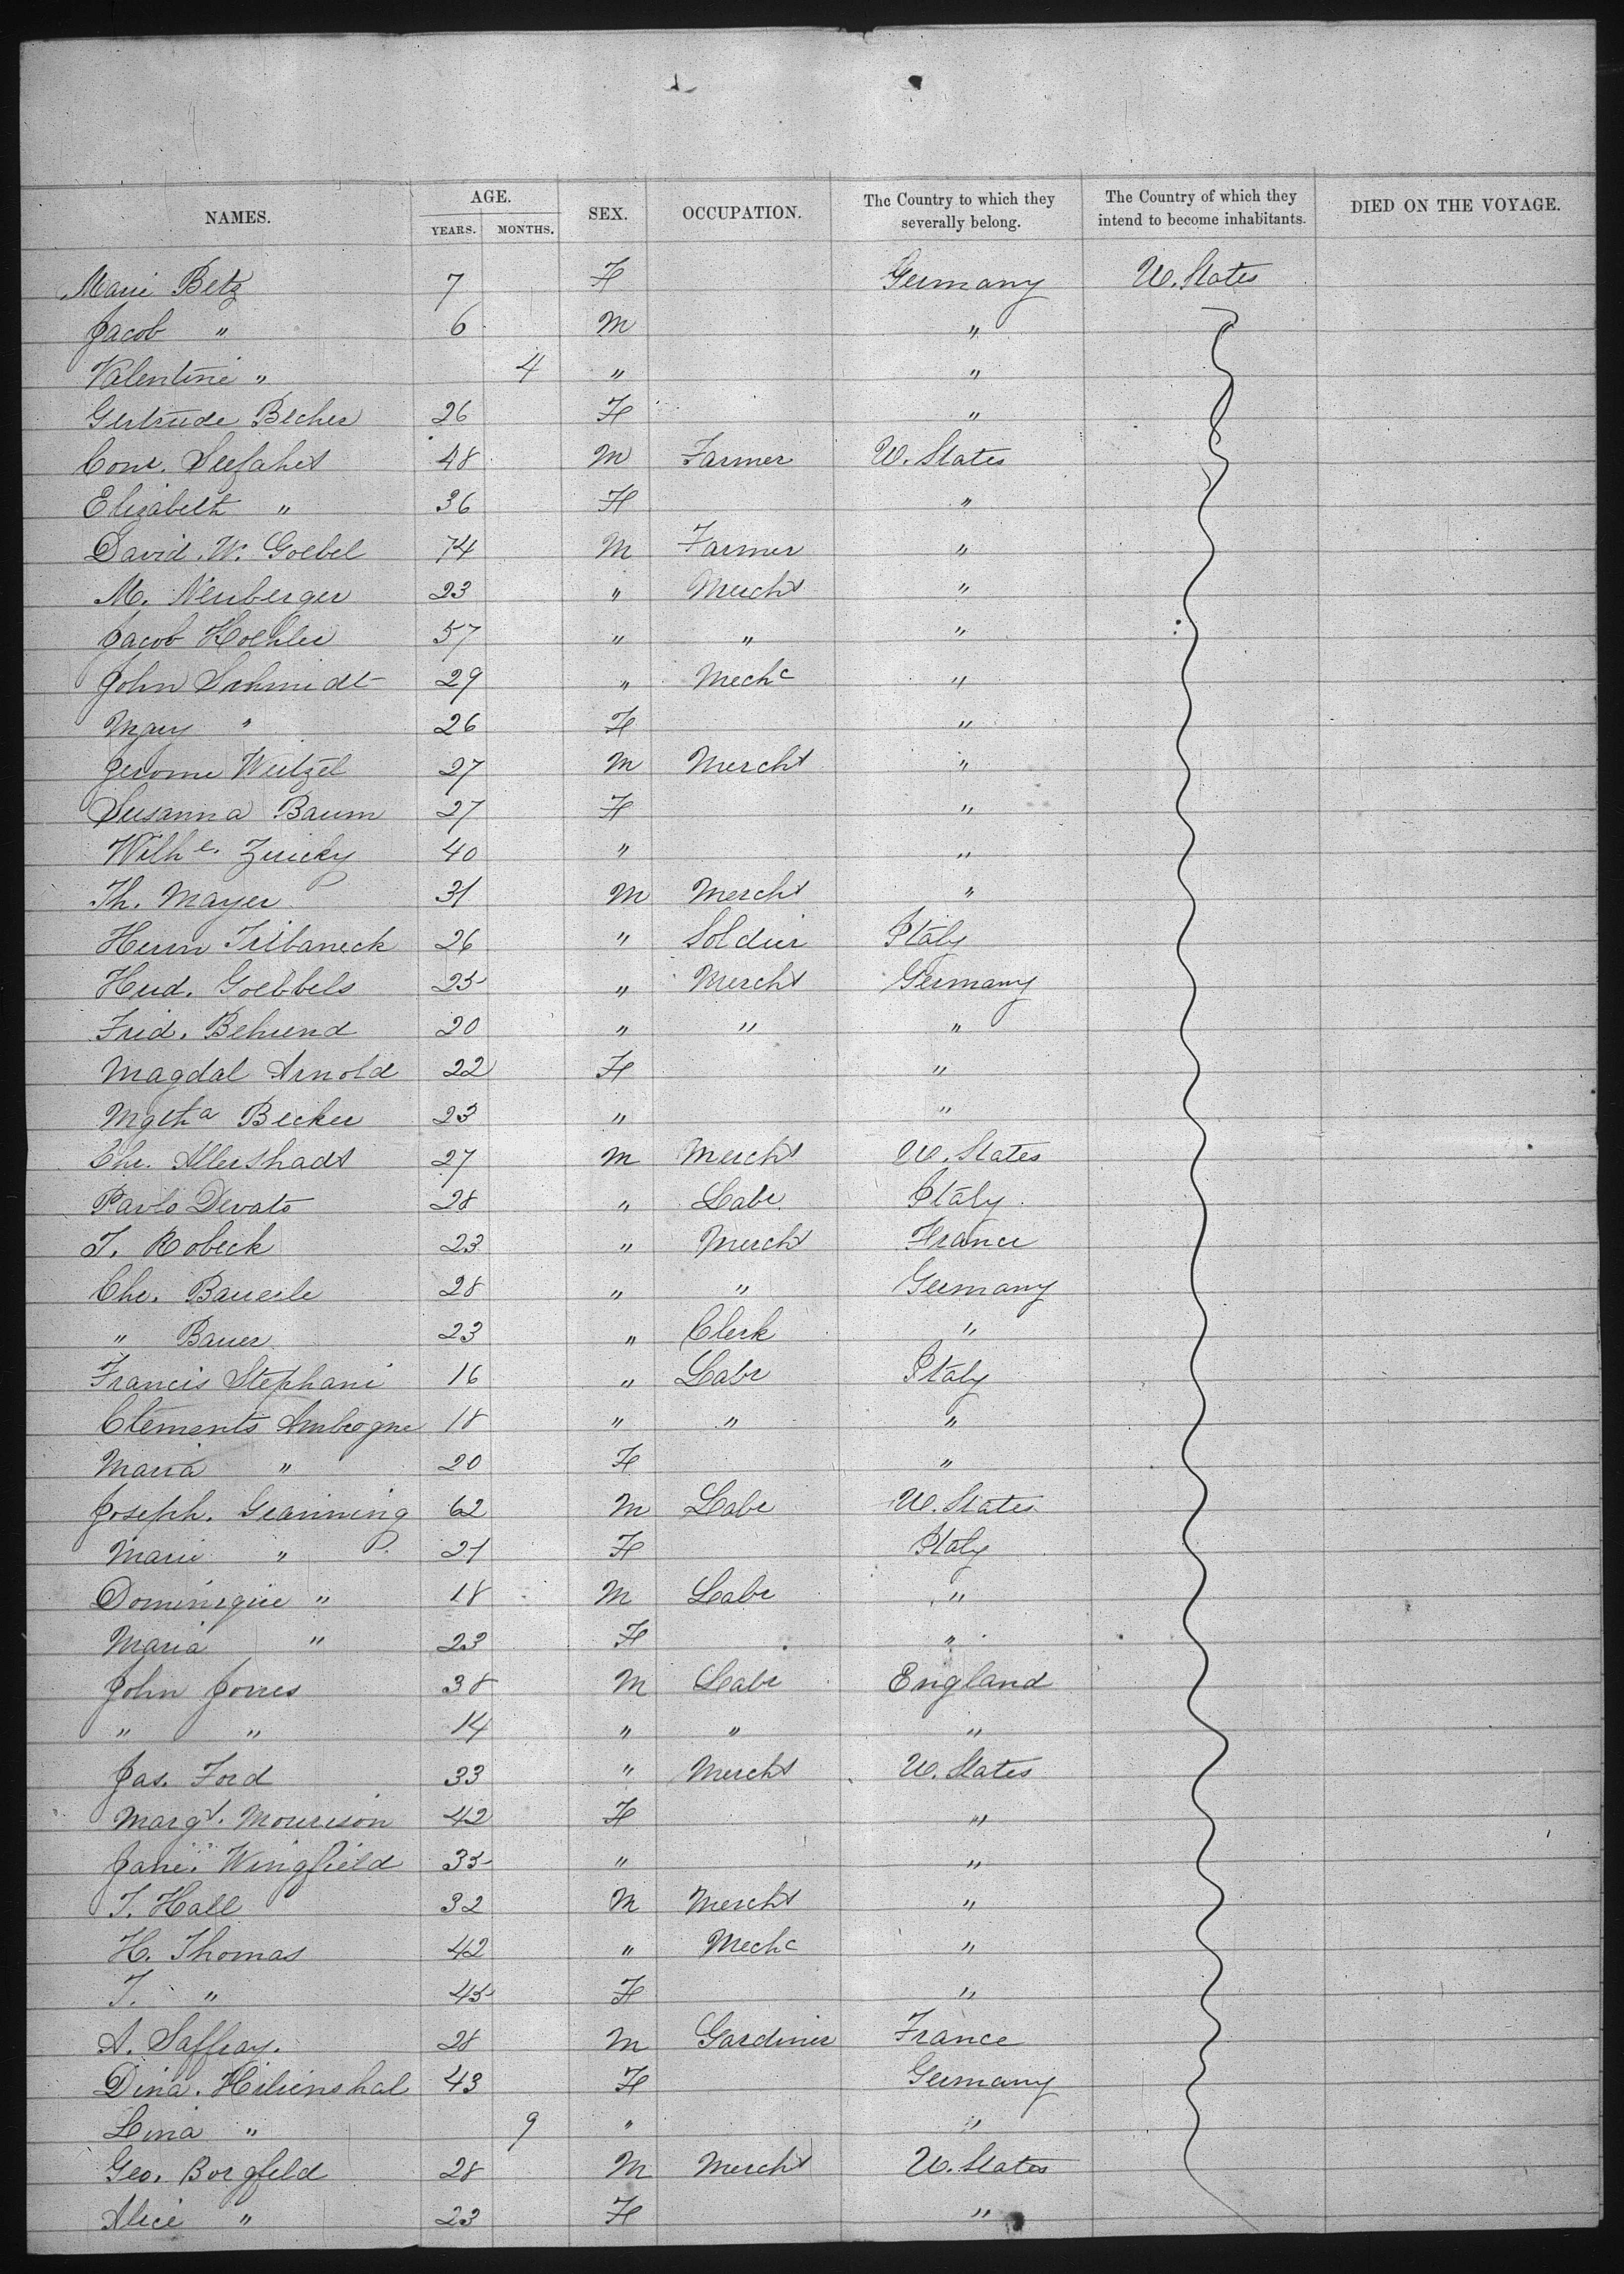 NAMES. AGE. YEARS. MONTHS. SEX. OCCUPATION. The Country to which they severally belong. The Country of which they intend to become inhabitants. DIED ON THE VOYAGE.
Marie Betz 7 F Germany U. States
Jacob " 6 M "
Valentine " 4 " "
Gertrude Becher 26 F "
Conr. Seefahrt 48 M Farmer U. States
Elizabeth " 36 F "
David. W. Goebel 74 M Farmer "
M. Neuberger 23 " Mercht "
Jacob Koehler 57 " " "
John Schmidt 29 " Mechc "
Mary " 26 F "
Jerome Weitzel 27 M Mercht "
Susanna Baum 27 F "
Wilhe. Zuicky 40 " "
Th. Mayer 31 M Mercht "
Herm Tribaneck 26 " Soldier Italy
Herd. Goebbels 25 " Mercht Germany
Fried. Behrend 20 " " "
Magdal Arnold 22 F "
Mgtha Becker 23 " "
Chr. Allershadt 27 M Mercht U. States
Pavlo Devato 28 " Labr. Italy
T. Robeck 23 " Mercht France
Chr. Bauerle 28 " " Germany
" Bauer 23 " Clerk "
Francis Stephani 16 " Labr Italy
Clements Ambrogne 18 " " "
Maria " 20 F "
Joseph. Granning 62 M Labr U. States
Marie " 21 F Italy
Dominique " 18 M Labr "
Maria " 23 F "
John Jones 38 M Labr England
" " 14 " " "
Jas. Ford 33 " Mercht U. States
Margt. Mourison 42 F "
Jane. Wingfield 35 " "
T. Hall 32 M Mercht "
H. Thomas 42 " Mechc "
T. " 45 F "
A. Saffray. 28 M Gardiner France
Dina. Hilienshal 43 F Germany
Lina " 9 " "
Geo. Borgfeld 28 M Mercht U. States
Alice " 23 F "